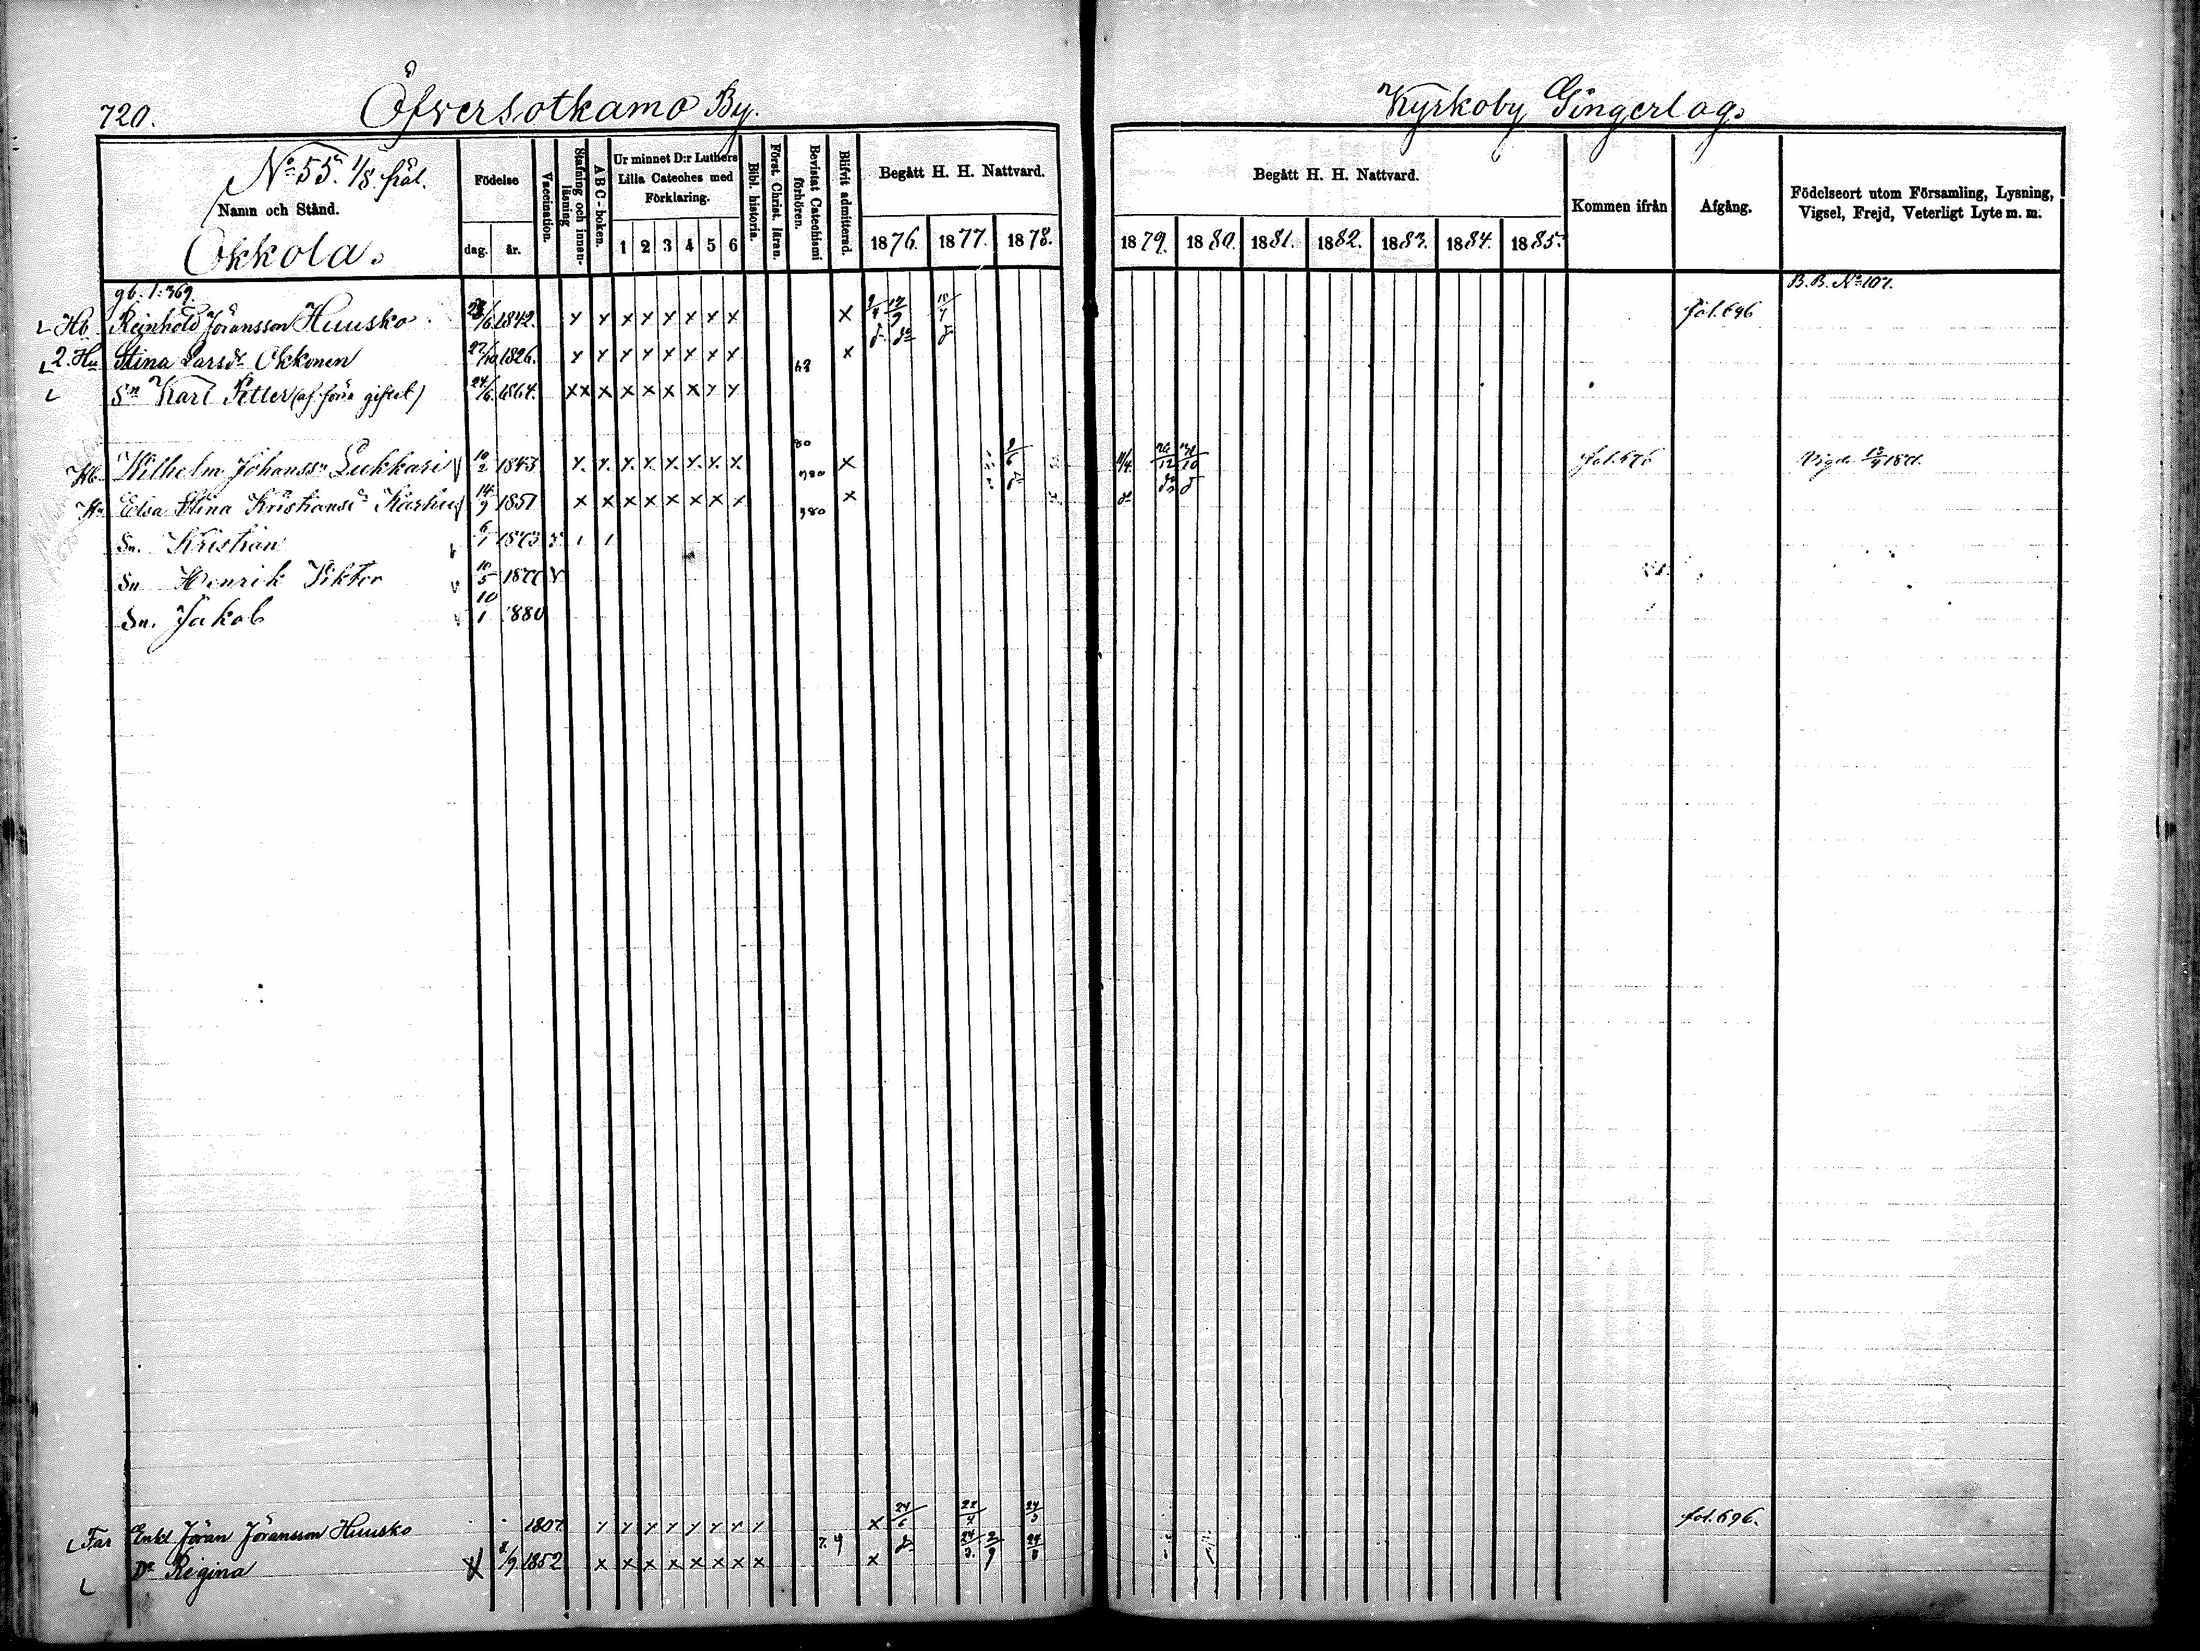 720.
Öfversotkamo By.
Kyrkoby Gingerlag.
No 55. 1/8 fräl.
Namn och Stånd.
Okkola.
Födelse
dag. år.
Vaccination.
Stafning och innan-läsning
A B C-boken.
Ur minnet D:r Luthers
Lilla Cateches med
Förklaring.
1 2 3 4 5 6
Bibl. historia.
Först. Christ. läran.
Bevistat Catechismi förhören.
Blifvit admitterad.
Begått H. H. Nattvard.
1876. 1877. 1878.
Begått H. H. Nattvard.
1879. 1880. 1881. 1882. 1883. 1884. 1885.
Kommen ifrån
Afgång.
Födelseort utom Församling, Lysning,
Vigsel, Frejd, Veterligt Lyte m. m.
gb. 1:369. B.B. No 107.
Hb Reinhold Jöransson Huusko 1842. x x x x x x x x x fol. 696
2. Hu Stina Larsdr Okkonen 27/10 1826. x x x x x x x x x
Sn Karl Petter (af förra giftet) 24/6 1864. x x x x x x x x x
80
Hb Wilhelm Johanss Lukkari 10/2 1843 x x x x x x x x x 2/6 11/4 26/12 fol. 676 Vigde
Hu Elsa Stina Kristiansdr 14/9 1851 x x x x x x x x x
Sn. Kristian 6/1 1873
Sn Henrik Viktor 10/5 1877
Sn. Jakob 10/1 1880
Far Enkl Jöran Jöransson Huusko 1807 x x x x x x x x x 24/6 fol. 696.
Dr Regina 1852 x x x x x x x x x